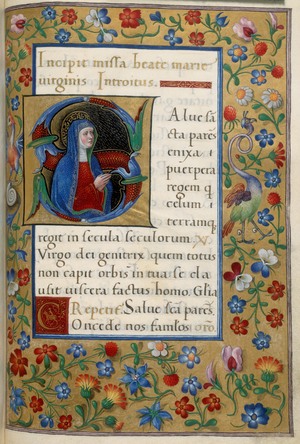 Incipit missa beate marie
virginis Introitus.
Salue sā
cta parēs
enixa
puerpera
regem q
celum
terramq
regit in secula seculorum. V.
Virgo dei genitrix quem totus
non capit orbis in tua se cla
usit viscera factus homo. Glia
Repetit̄. Salue scā parēs.
Concede nos famlos oro.